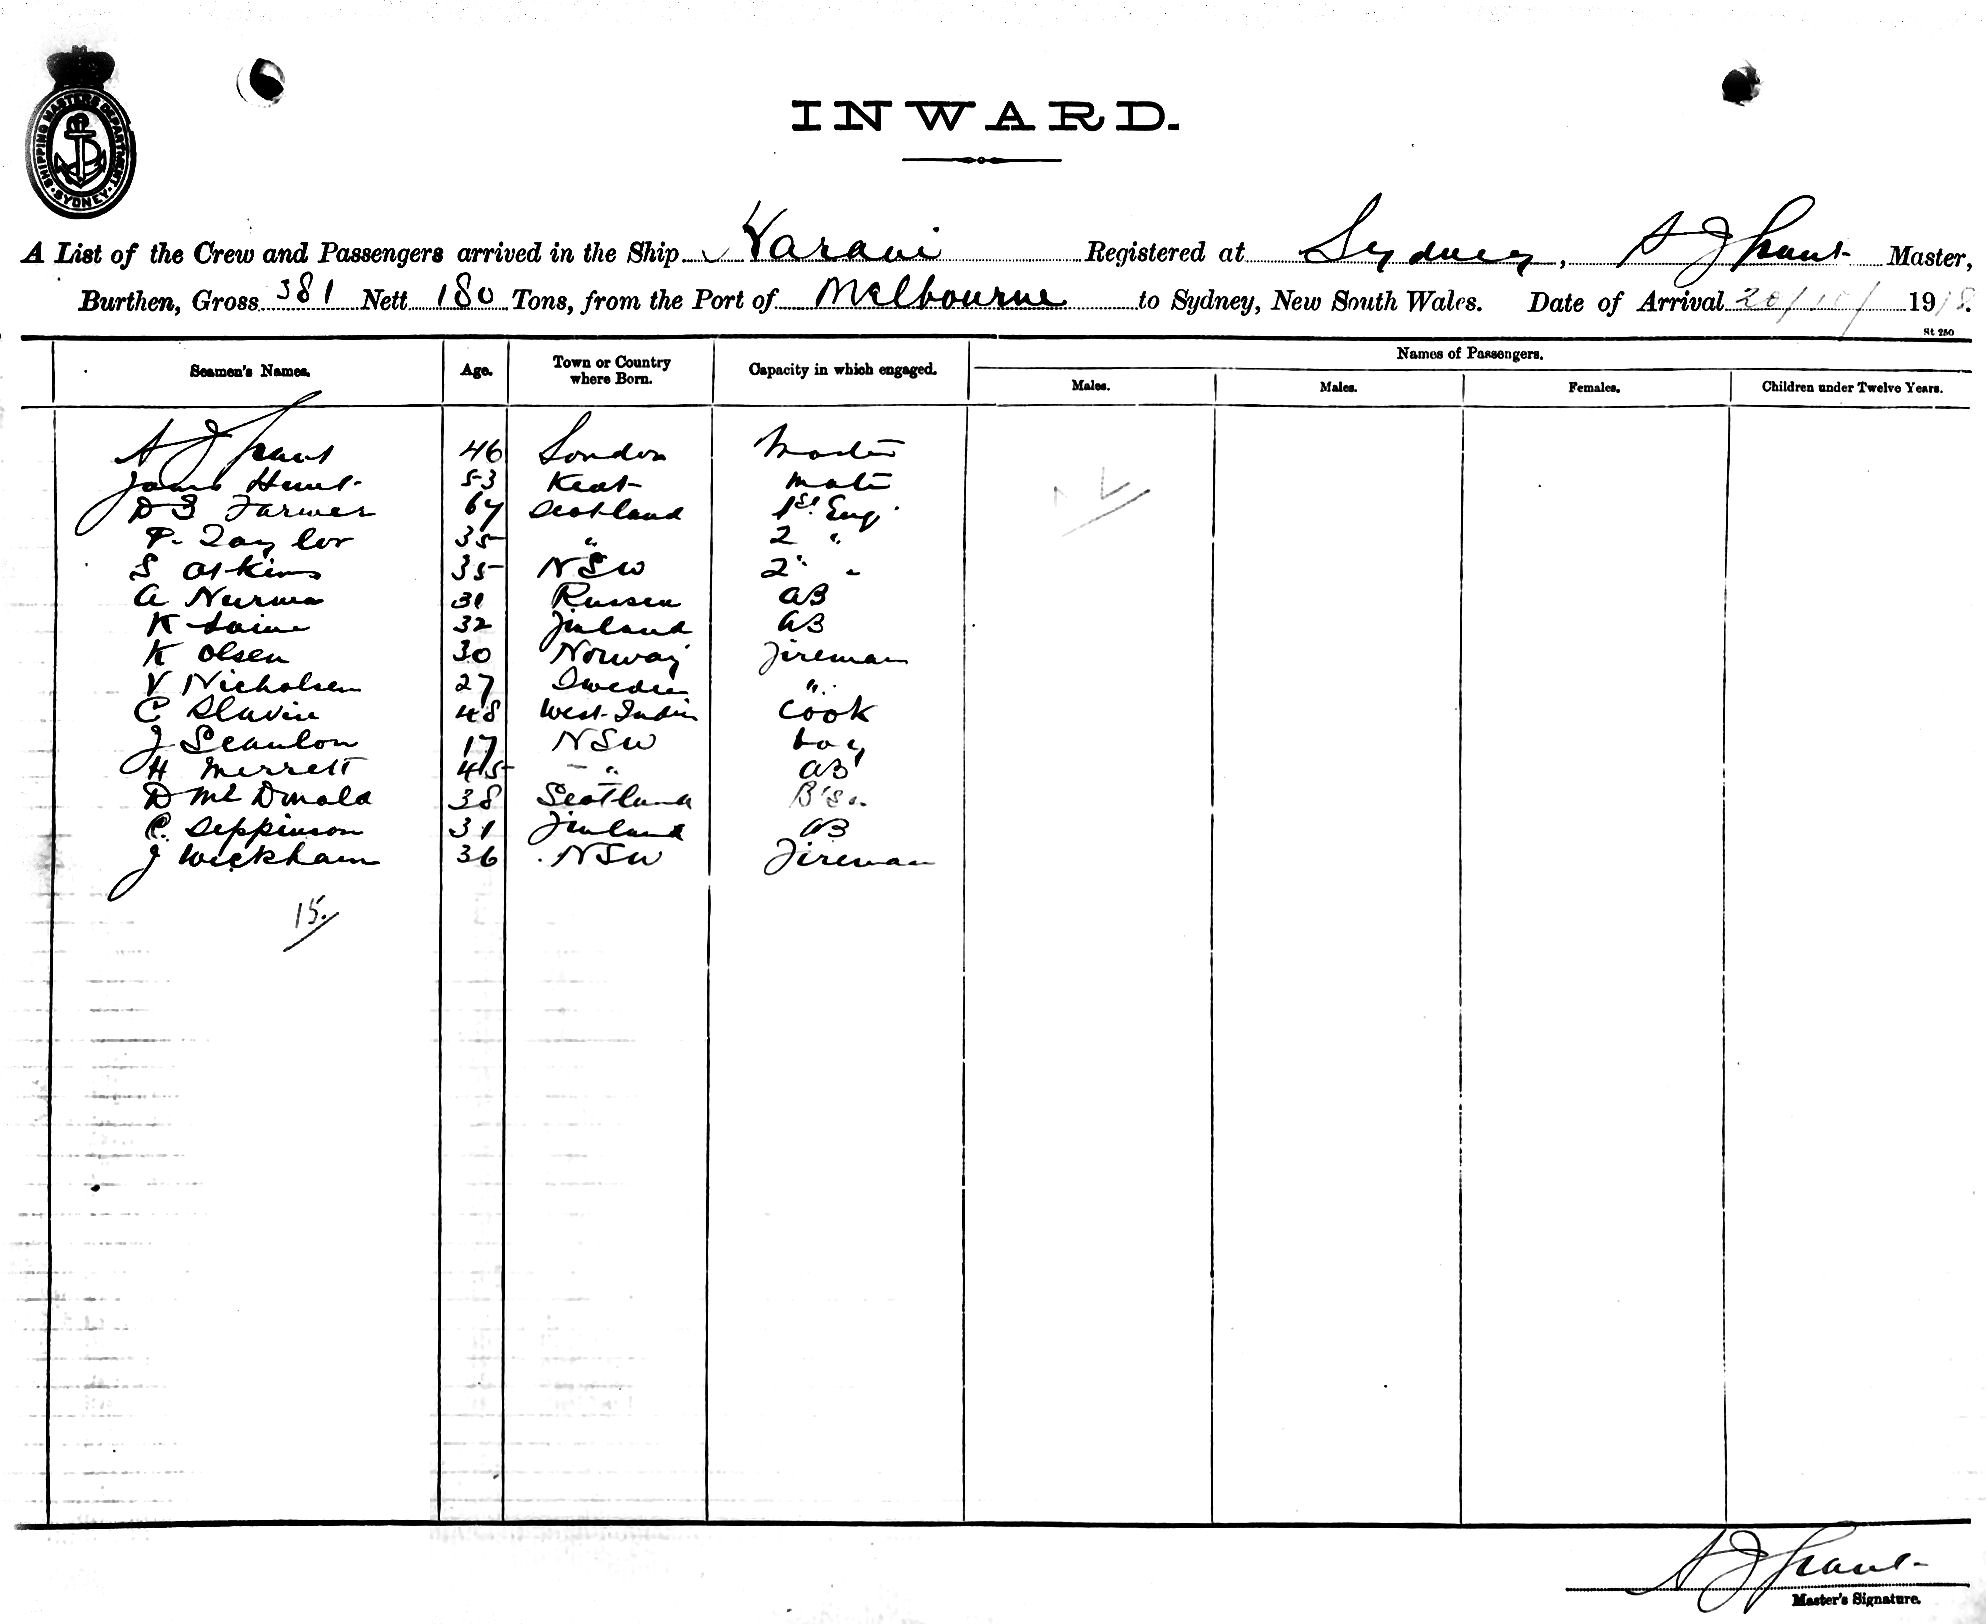 SHIPPING MASTERS DEPARTMENT · SYDNEY ·
INWARD.
A List of the Crew and Passengers arrived in the Ship Karani Registered at Sydney, A J Grant Master,
Burthen, Gross 381 Nett 180 Tons, from the Port of Melbourne to Sydney, New South Wales. Date of Arrival 20/10/1918.
St 250
Seamen's Names. Age. Town or Country where Born. Capacity in which engaged. Names of Passengers.
Males. Males. Females. Children under Twelve Years.
A J Grant 46 London Master
James Hunt 53 Kent Mate
D S Farmer 64 Scotland 1st Eng.
P. Taylor 35 " 2 "
S Atkins 35 NSW 2" "
A Nurma 31 Russia AB
K Laine 32 Finland AB
K Olsen 30 Norway Fireman
V Nicholsen 27 Sweden "
C Slavin 48 West Indies Cook
J Scanlon 17 NSW boy
H Merrett 45 - " AB
D McDonald 38 Scotland
C. Seppinson 31 Finland AB
J Wickham 36 NSW Fireman
15.
A J Grant
Master's Signature.